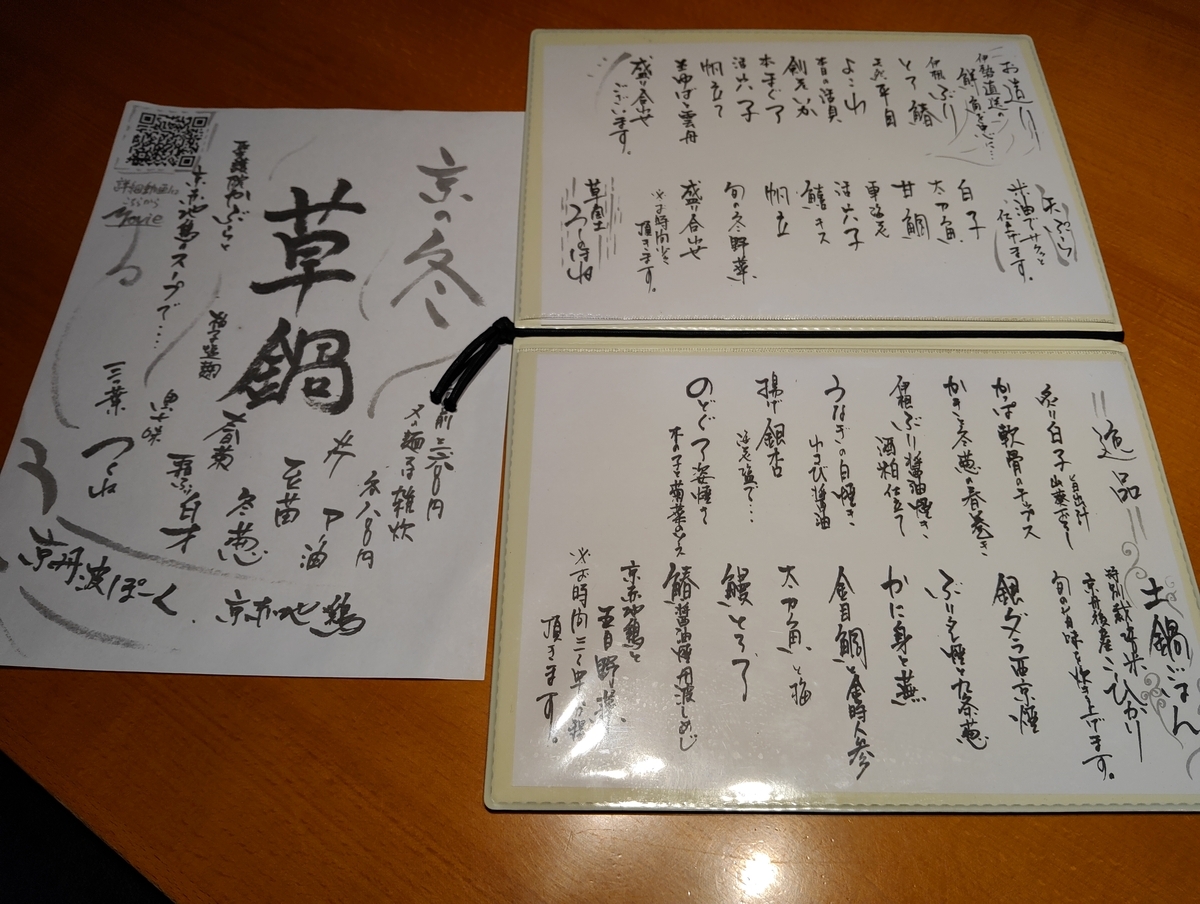 お造り
伊勢直送の
鮮魚を中心に…
伊根ぶり
とろ鰆
天然平目
よこわ
本日の活貝
剣先いか
本まぐろ
活穴子
帆立て
生ゆば雲丹
盛り合せ
ございます。
天ぷら
米油でサクッと
仕上げます。
白子
太刀魚
甘鯛
車海老
活穴子
鱚キス
帆立
旬の冬野菜
盛り合せ
※お時間少々
頂きます。
草屋
逸品
炙り白子
と白出汁
山葵おろし
かっぱ軟骨の
かきと冬葱の春巻き
伊根ぶり醤油焼き
酒粕仕立て
うなぎの白焼き
わさび醤油
揚げ銀杏
海老塩で…
のどぐろ姿焼き
木の子菊菜のソース
土鍋ごはん
特別栽培米
京丹後産こしひかり
旬の旨味を炊き上げます。
銀ダラ西京焼
ぶりタレ焼と九条葱
かに身と蕪
金目鯛と金時人参
太刀魚と梅
鰻とろろ
鰆醤油焼丹波しめじ
京赤地鶏と
五目野菜
※お時間三十早分程
頂きます。
京の冬
草鍋
聖護院かぶらと
京赤地鶏のスープで…
詳細動画は
こちらから
Movie
〆の麺or雑炊
〆
ラー油
豆苗
冬葱
春菊
黒七味
三つ葉
つくね
京丹波ぽーく
京赤地鶏